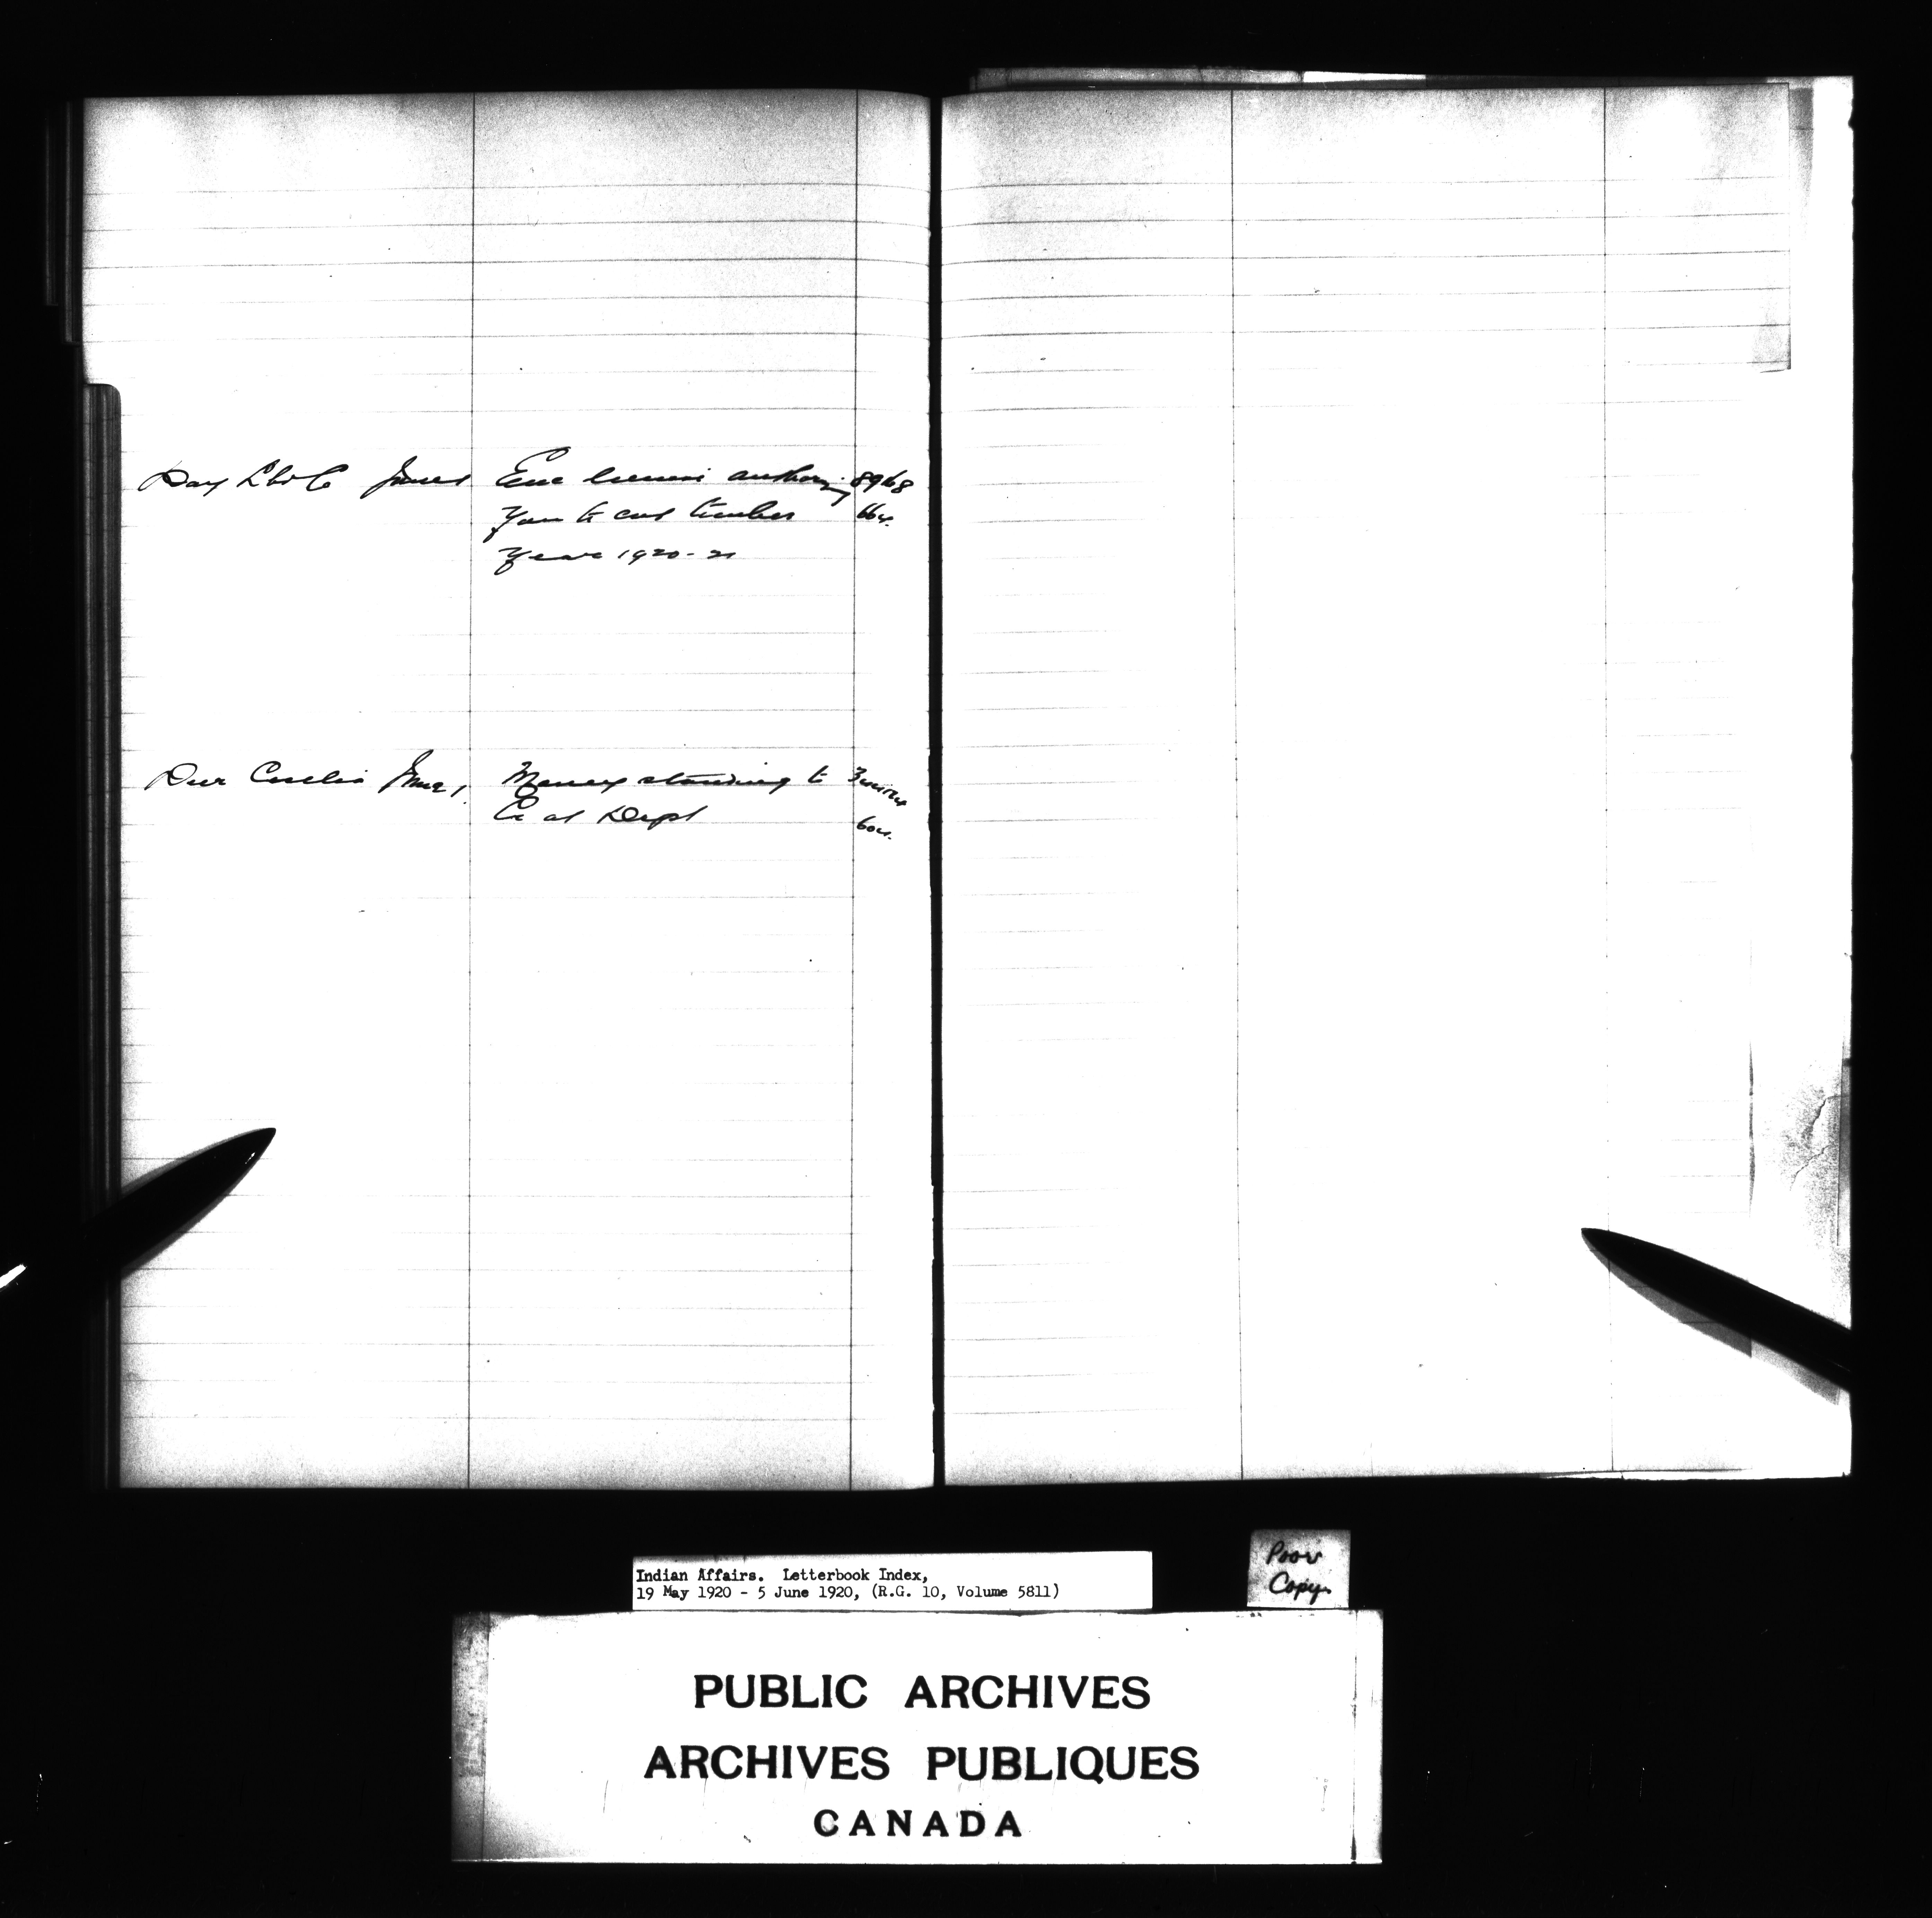 Day L & Co June 1 Enc license authorizing 8968
you to cut timber 664.
Year 1920-21
Deer Cecelia June 1. Money standing to
Cr at Dept 604.
Indian Affairs. Letterbook Index,
19 May 1920 - 5 June 1920, (R.G. 10, Volume 5811)
Poor
Copy.
PUBLIC ARCHIVES
ARCHIVES PUBLIQUES
CANADA